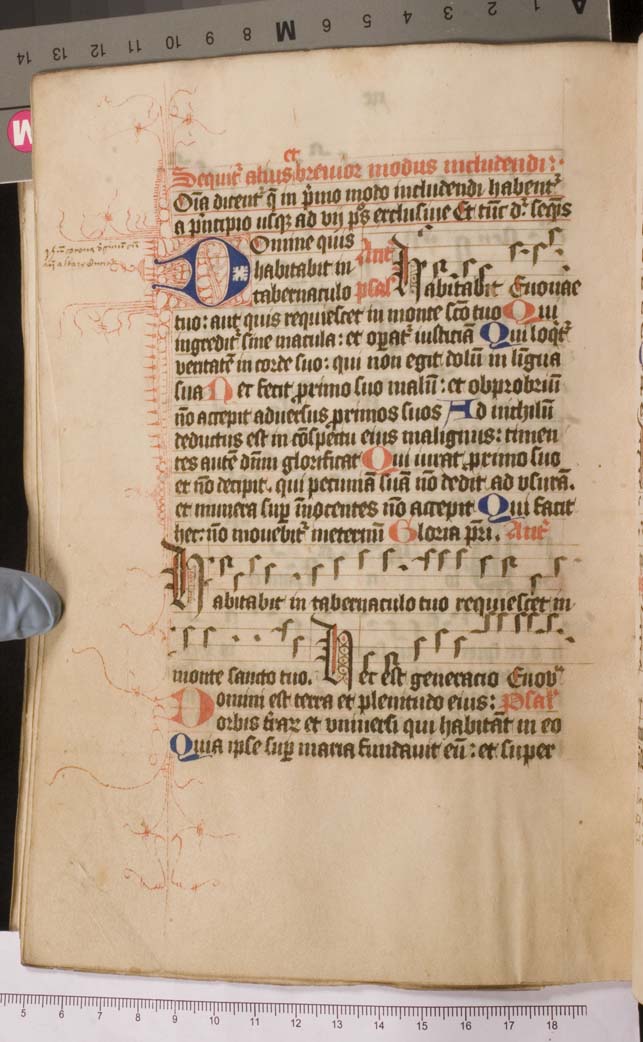 et
Sequit᷑ alius brevior modus includendi :·
Oīa dicent᷑ q̄ in p̄mo modo includendi habent᷑
a p̄ncipio usq; ad vij ps̄ exclusive Et tūc d᷑ seq̄ns
Domine quis Ant᷑
habitabit in Habitabit Euouae
tabernaculo psal᷑
tuo : aut quis requiescet in monte sc̄o tuo Qui
ingredit᷑ sine macula : et opat᷑ iusticiā Qui loqt᷑
veritatē in corde suo : qui non egit dolū in līgua
sua Nec fecit proximo suo malū : et obprobriū
nō accepit adversus proximos suos Ad nichilū
deductus est in cōspectu eius malignus : timen
tes autē dn̄m glorificat Qui iurat proximo suo
et nō decipit . qui pecuniā suā nō dedit ad usurā .
et munera sup īnocentes nō accepit Qui facit
hec : nō movebit᷑ in eternū Gloria pr̄i . Ant᷑
Habitabit in tabernaculo tuo requiescet in
monte sancto tuo . Hec est generacio Euov
Domini est terra et plenitudo eius : Psal᷑
orbis t̄rar᷑ et universi qui habitāt in eo
Quia ipse sup maria fundavit eū : et super
A 1 2 3 4 5 6 M 8 9 10 11 12 13 14
M
5 6 7 8 9 10 11 12 13 14 15 16 17 18